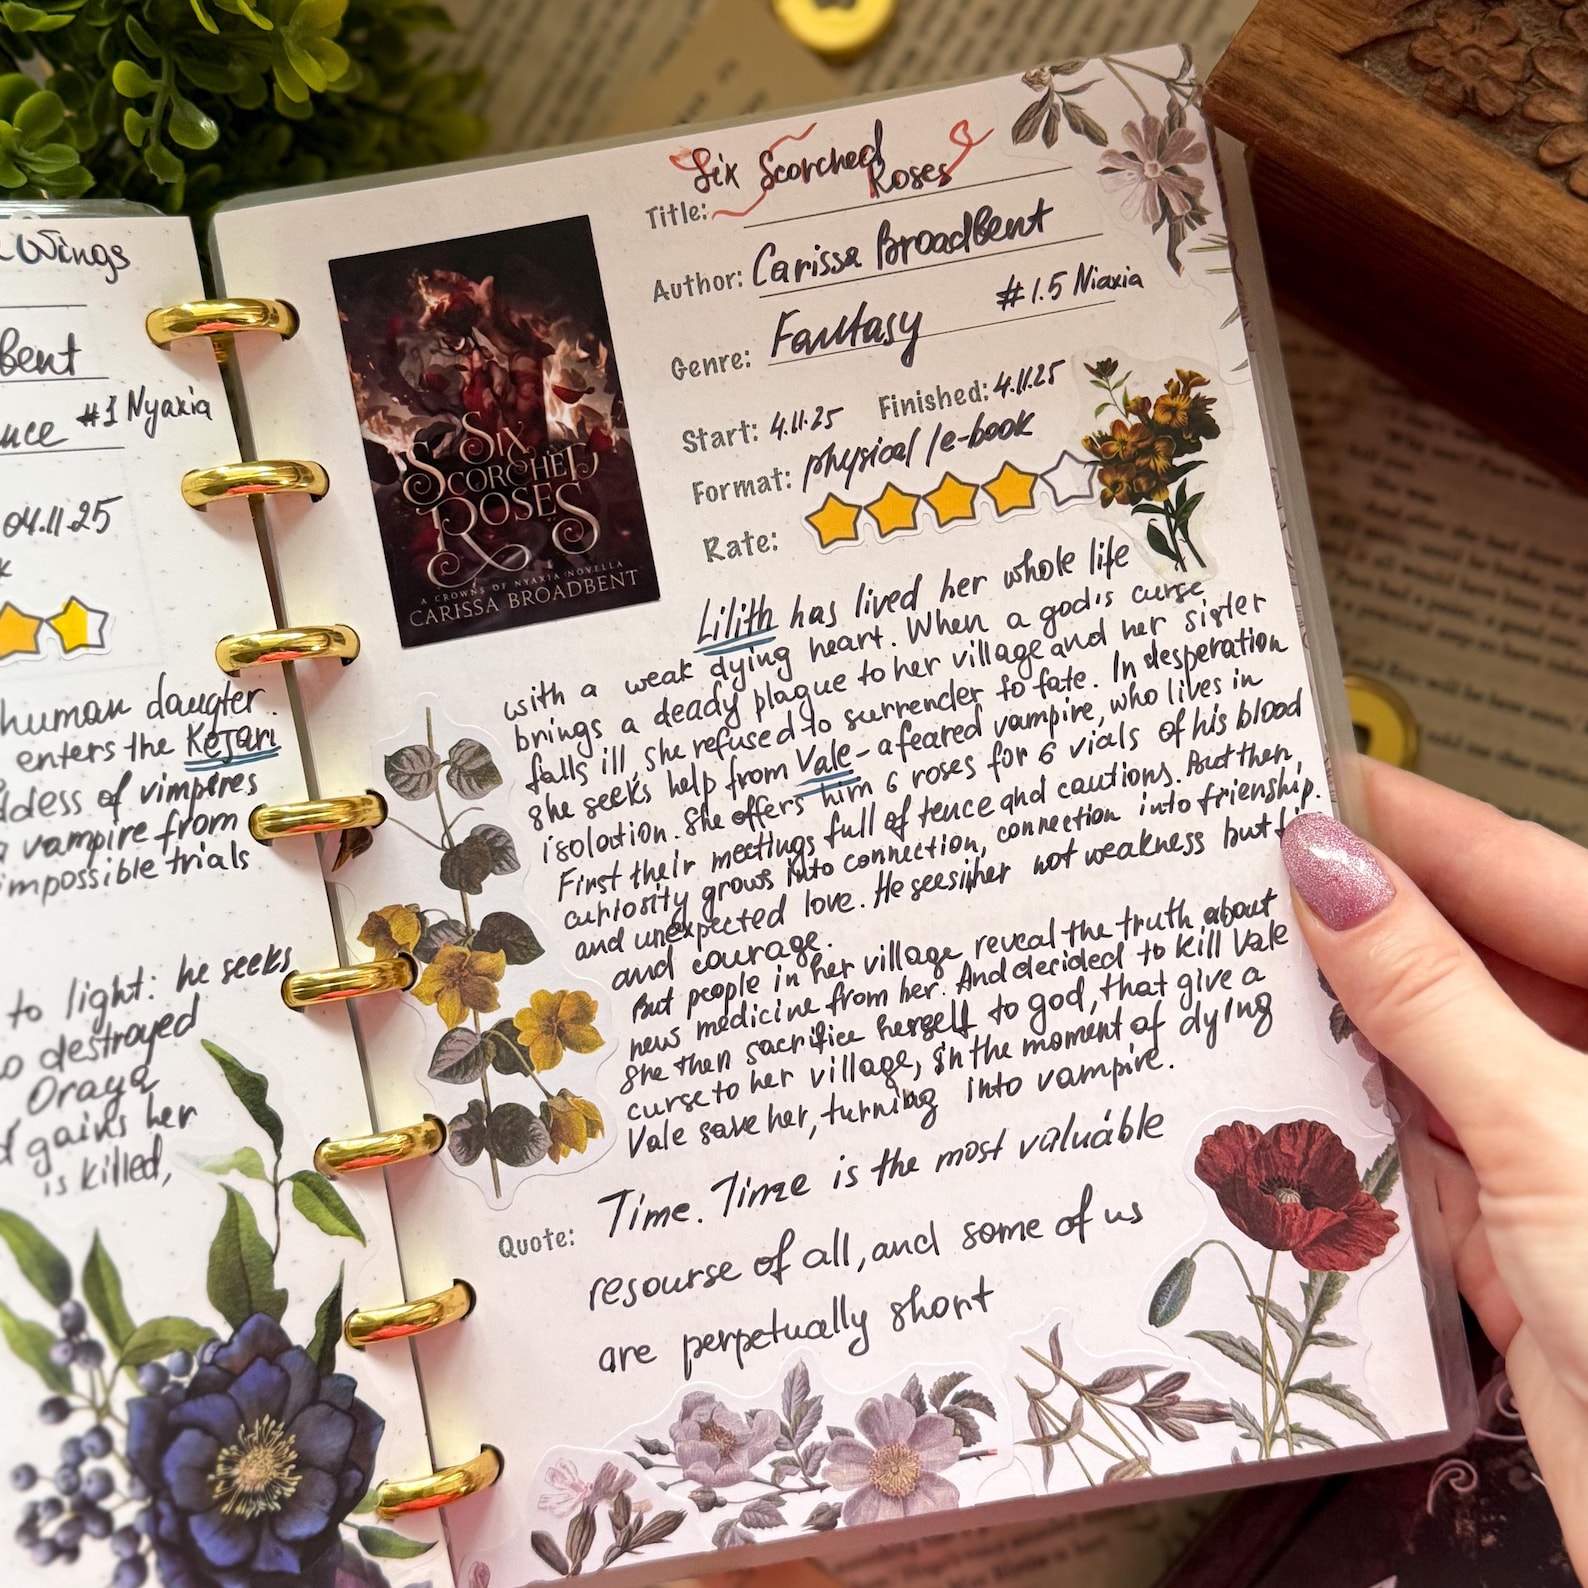 Wings
Bent
nce #1 Nyaxia
04.11.25
human daugter.
enters the Kejari
ddess of vimpires
a vampire from
impossible trials
to light: he seeks
o destroyed
Oraya
gains her
is killed,
Six Scorched
Roses
Title:
Author: Carissa Broadbent
Genre: Fantasy #1.5 Niaxia
Start: 4.11.25 Finished: 4.11.25
Format: physical/e-book
Rate:
SIX
SCORCHED
ROSES
A CROWNS OF NYAXIA NOVELLA
CARISSA BROADBENT
Lilith has lived her whole life
with a weak dying heart. When a god's curse
brings a deadly plague to her village and her sister
falls ill, she refused to surrender to fate. In desperation
she seeks help from Vale - a feared vampire, who lives in
isolation. She offers him 6 roses for 6 vials of his blood
First their meetings full of tence and cautions. But then,
curiosity grows into connection, connection into friendship.
and unexpected love. He sees in her not weakness but
and courage.
But people in her village reveal the truth about
new medicine from her. And decided to kill Vale
She then sacrifice herself to god, that give a
curse to her village, in the moment of dying
Vale save her, turning into vampire.
Quote: Time. Time is the most valuable
resourse of all, and some of us
are perpetually short